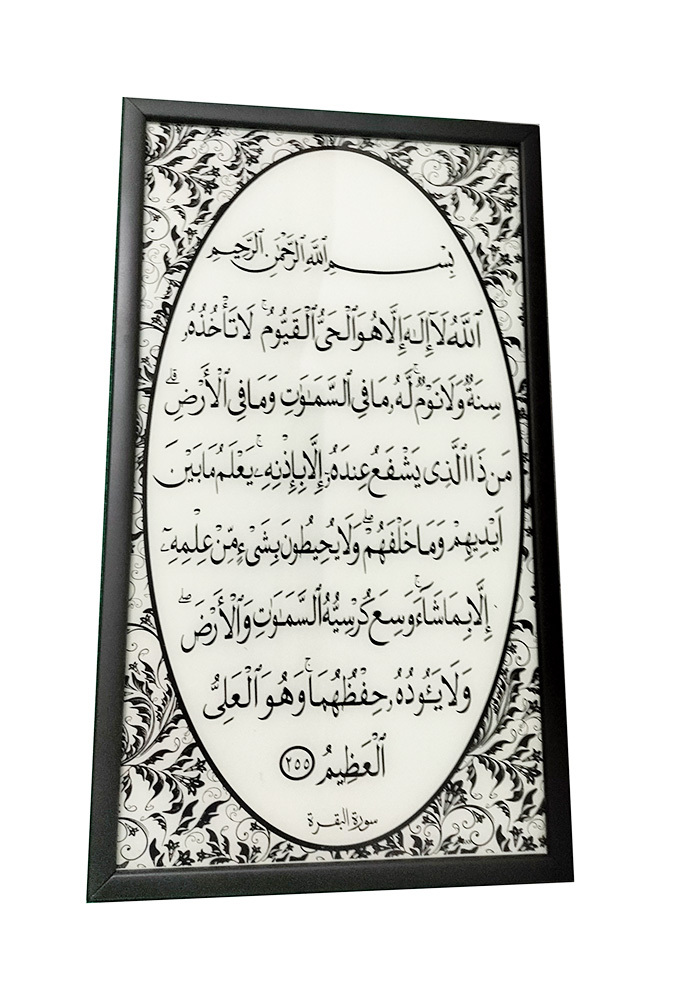 بِسْمِ ٱللَّهِ ٱلرَّحْمَٰنِ ٱلرَّحِيمِ
ٱللَّهُ لَآ إِلَٰهَ إِلَّا هُوَ ٱلْحَىُّ ٱلْقَيُّومُ ۚ لَا تَأْخُذُهُۥ
سِنَةٌ وَلَا نَوْمٌ ۚ لَّهُۥ مَا فِى ٱلسَّمَٰوَٰتِ وَمَا فِى ٱلْأَرْضِ ۗ
مَن ذَا ٱلَّذِى يَشْفَعُ عِندَهُۥٓ إِلَّا بِإِذْنِهِۦ ۚ يَعْلَمُ مَا بَيْنَ
أَيْدِيهِمْ وَمَا خَلْفَهُمْ ۖ وَلَا يُحِيطُونَ بِشَىْءٍ مِّنْ عِلْمِهِۦٓ
إِلَّا بِمَا شَآءَ ۚ وَسِعَ كُرْسِيُّهُ ٱلسَّمَٰوَٰتِ وَٱلْأَرْضَ ۖ
وَلَا يَـُٔودُهُۥ حِفْظُهُمَا ۚ وَهُوَ ٱلْعَلِىُّ
ٱلْعَظِيمُ ٢٥٥
سورة البقرة